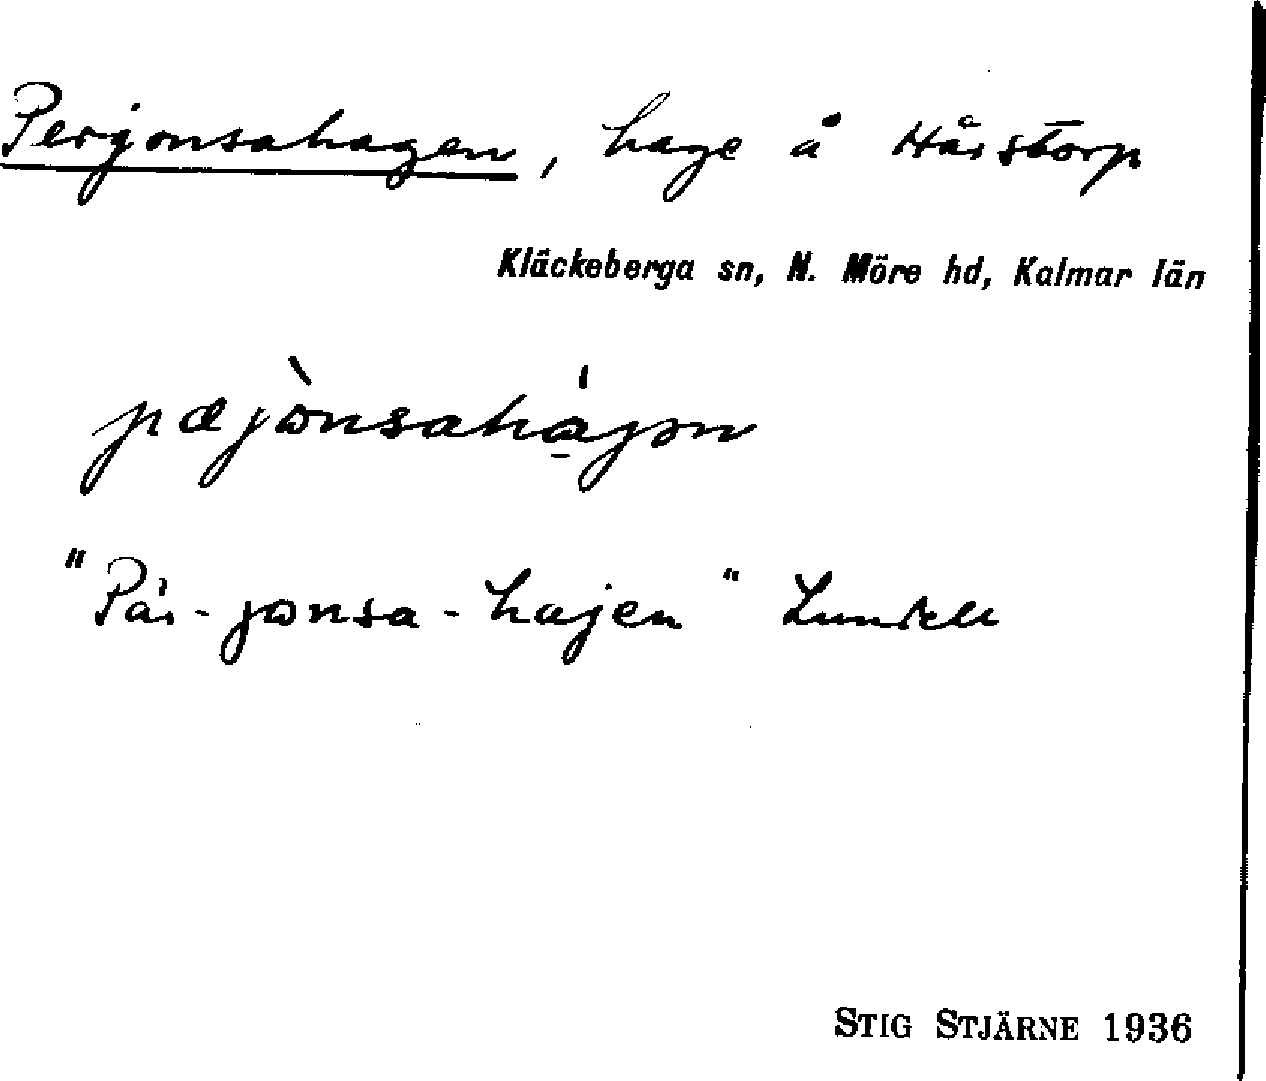 Perjonsahagen, hage å Hårstorp
Kläckeberga sn, N. Möre hd, Kalmar län
pæjònsahájən
"Pär-jonsa-hajen" Lundell
STIG STJÄRNE 1936